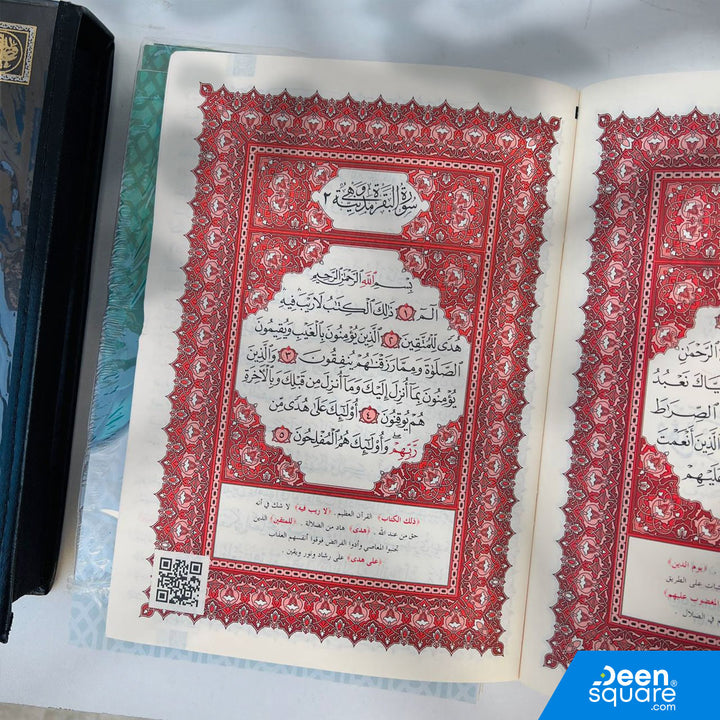 سورة البقرة وهي مدنية ٢
بِسْمِ اللَّهِ الرَّحْمَنِ الرَّحِيمِ
الٓمٓ ١ ذَٰلِكَ الْكِتَابُ لَا رَيْبَ فِيهِ
هُدًى لِّلْمُتَّقِينَ ٢ الَّذِينَ يُؤْمِنُونَ بِالْغَيْبِ وَيُقِيمُونَ
الصَّلَوٰةَ وَمِمَّا رَزَقْنَٰهُمْ يُنفِقُونَ ٣ وَالَّذِينَ
يُؤْمِنُونَ بِمَآ أُنزِلَ إِلَيْكَ وَمَآ أُنزِلَ مِن قَبْلِكَ وَبِالْآخِرَةِ
هُمْ يُوقِنُونَ ٤ أُوْلَٰٓئِكَ عَلَىٰ هُدًى مِّن
رَّبِّهِمْ وَأُوْلَٰٓئِكَ هُمُ الْمُفْلِحُونَ ٥
﴿ذلك الكتاب﴾ القرآن العظيم. ﴿لا ريب فيه﴾ لا شك في أنه
حق من عند الله. ﴿هدى﴾ هاد من الضلالة. ﴿للمتقين﴾ الذين
تجنبوا المعاصي وأدوا الفرائض فوقوا أنفسهم العذاب
﴿على هدى﴾ على رشاد ونور ويقين.
الرَّحْمَٰنِ
إِيَّاكَ نَعْبُدُ
الصِّرَاطَ
الَّذِينَ أَنْعَمْتَ
عَلَيْهِمْ
﴿يوم الدين﴾
على الطريق
المغضوب عليهم﴾
في الضلال.
Deen
square®
.com